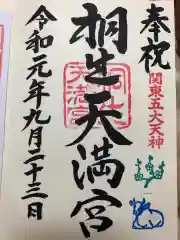 奉祝
関東五大天神
桐生天満宮
令和元年九月二十三日